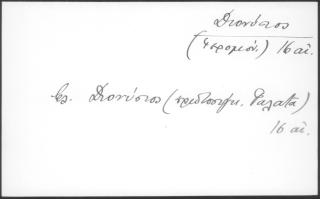 Διονύσιος
(ιερομόν.) 16 αἰ.
βλ. Διονύσιος (πρωτοσύγκ. Γαλατᾶ)
16 αἰ.